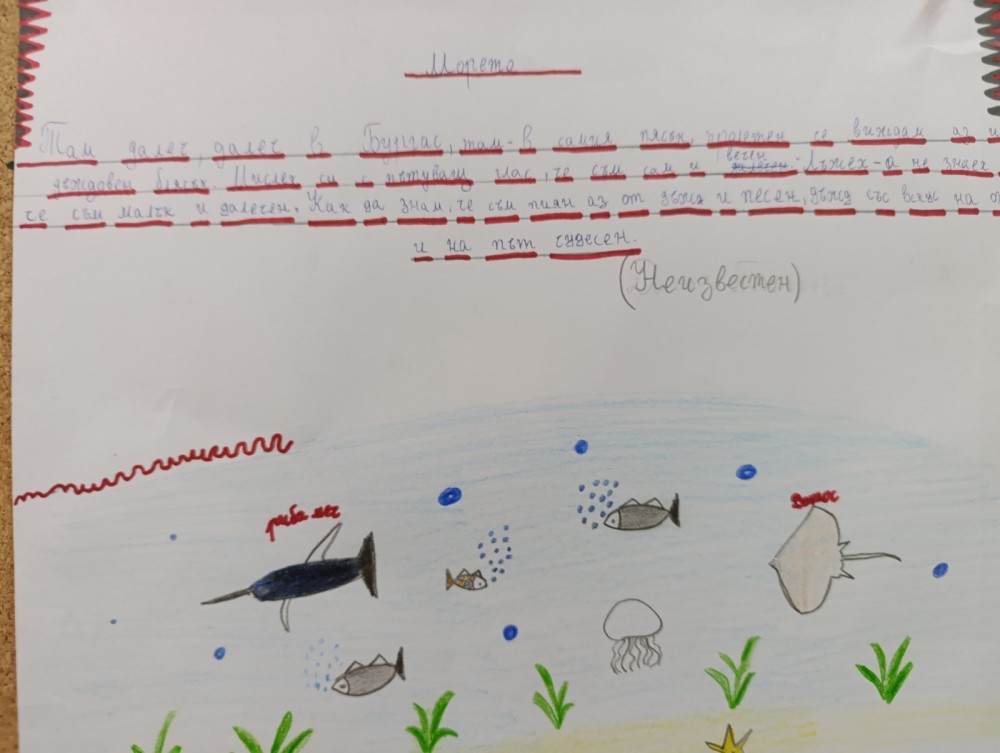 Морето
Там далеч, далеч в Бургас, там - в самия пясък, пролетен се виждам аз и
дъждовен блясък. Мислех си с пътуващ глас, че съм сам и вечен. Лъжех-а не знаех
че съм малък и далечен. Как да знам, че съм пиян аз от дъжд и песен, дъжд със вкус на
и на път чудесен.
(Неизвестен)
риба меч
Скат